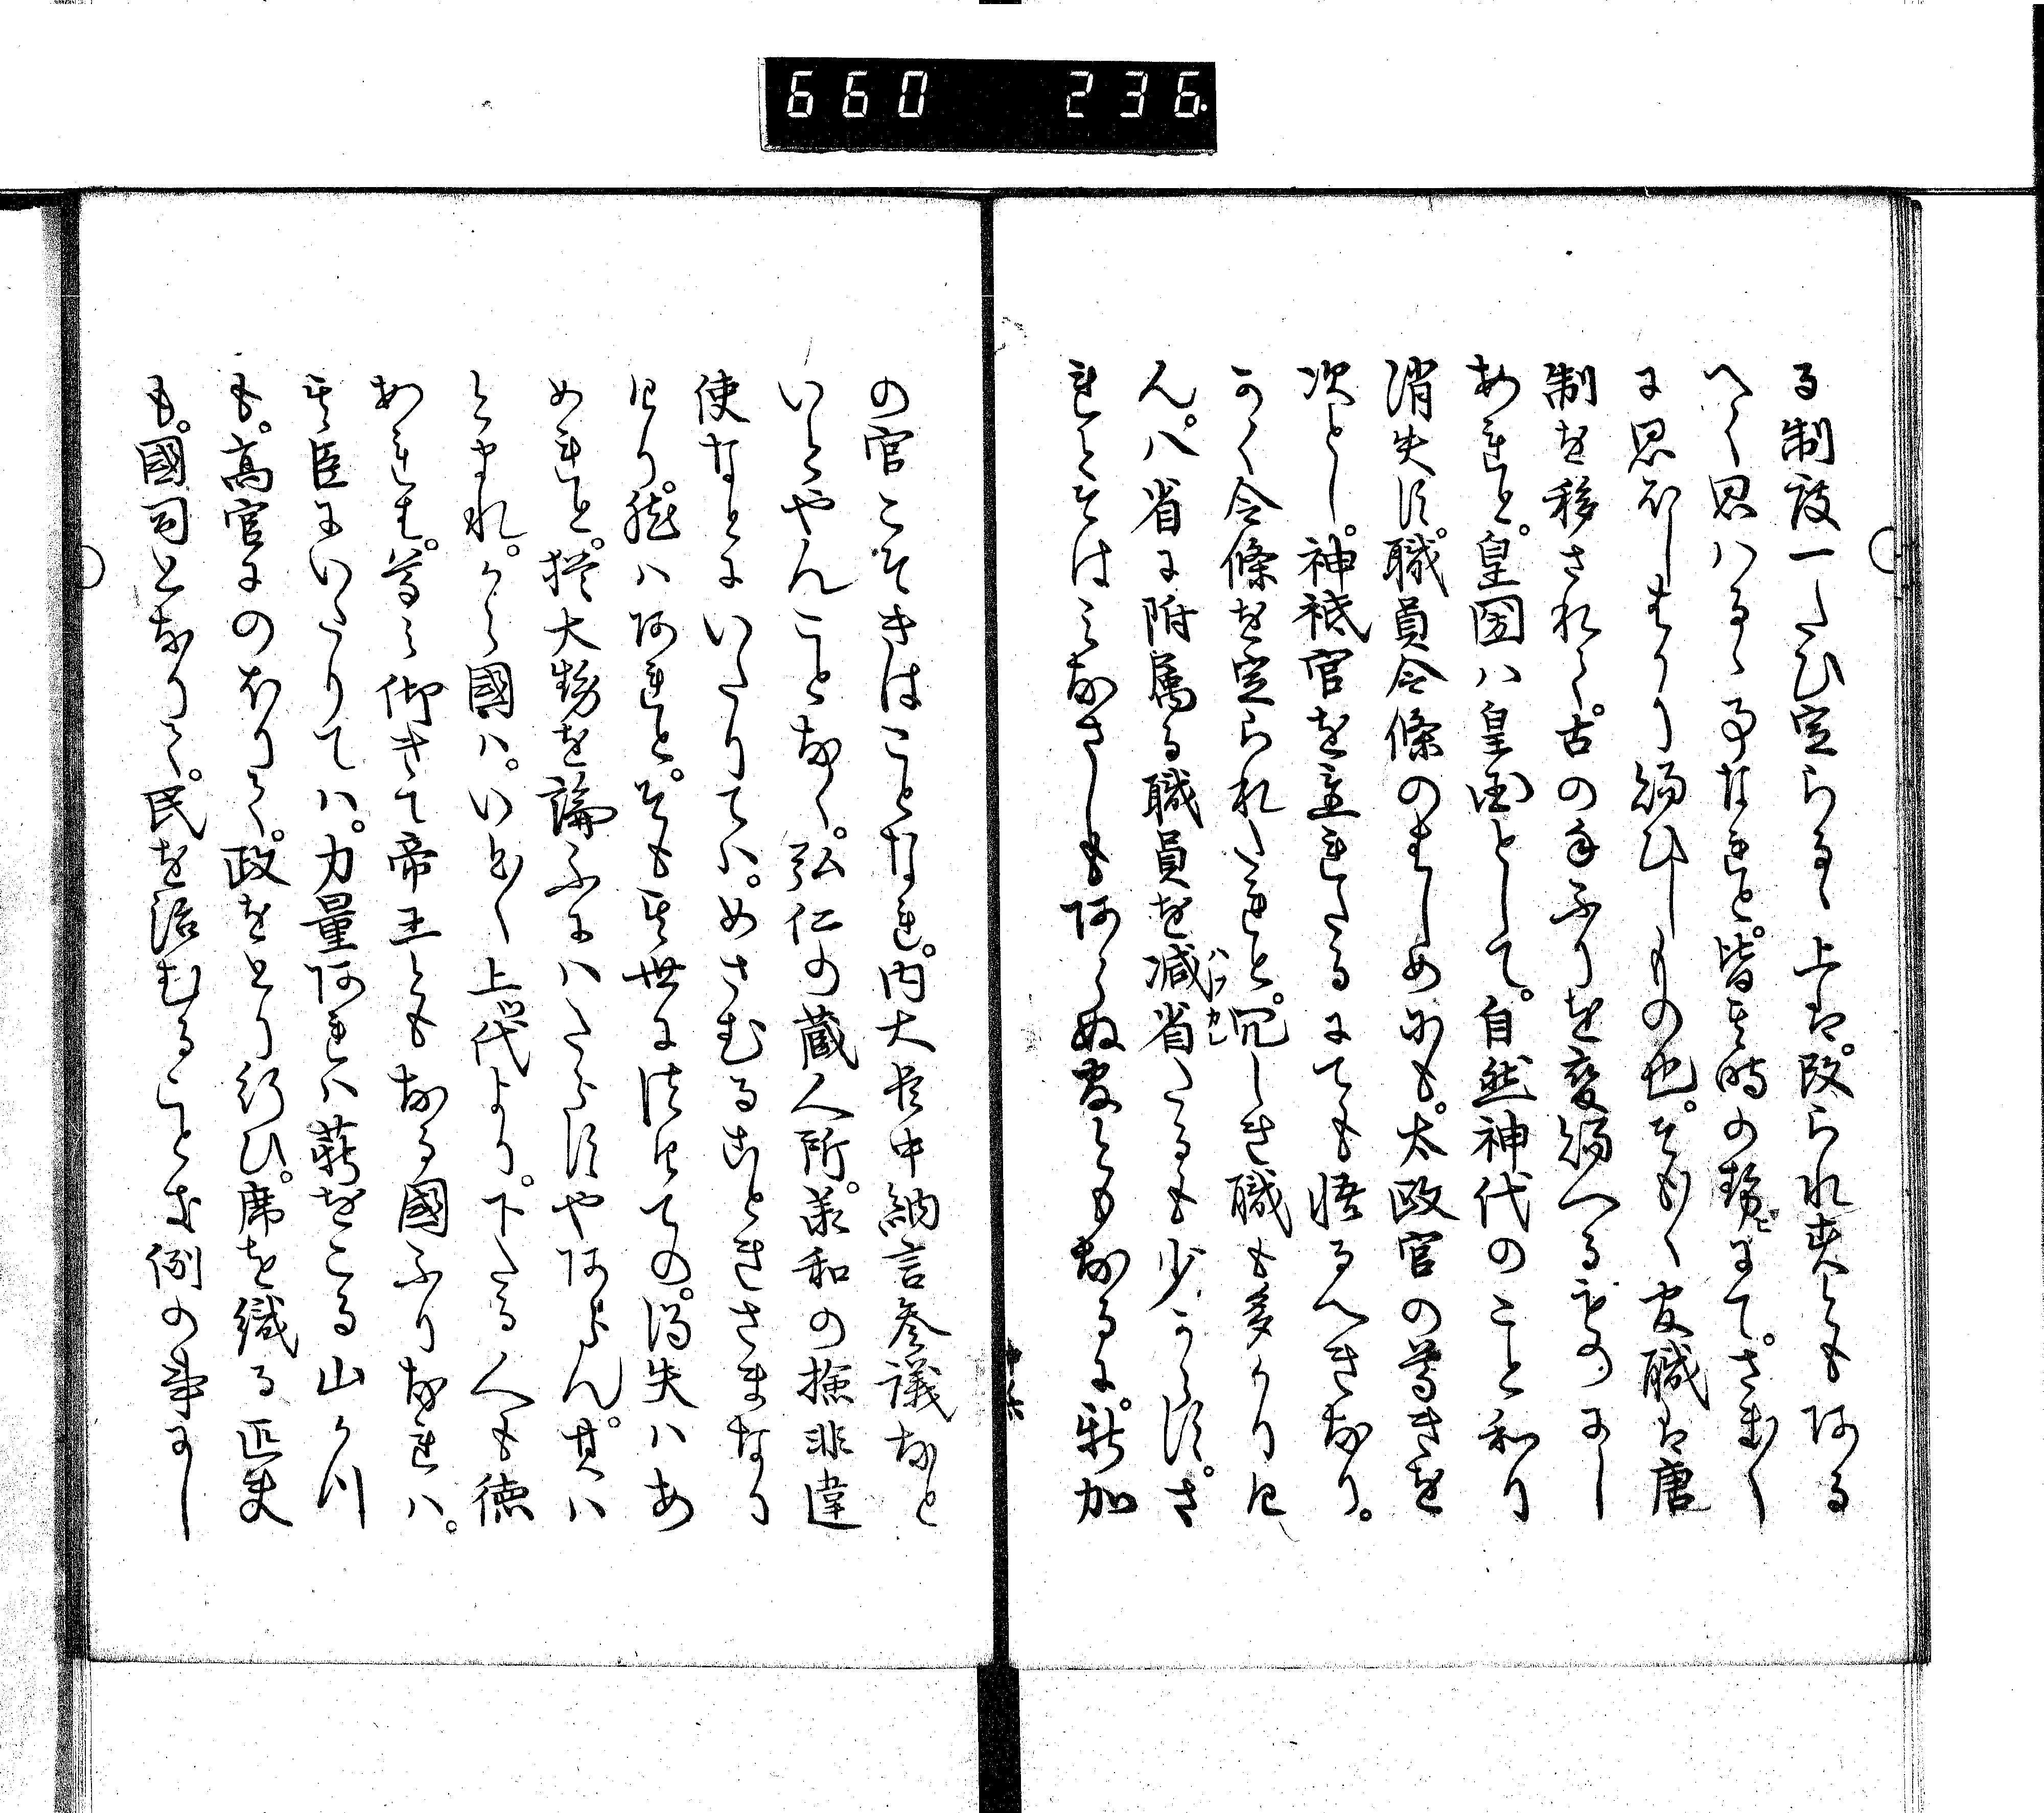 660 236.
る制度一たひ定らるゝ上は。改られ夫とも阿る
へく思ハるゝ事なれと。皆其時の勢にて。さまく
に思ほしはかり給ひしもの也。そも〳〵官職は唐
制を移されて。古の手ふりを変給へるものにし
あれと。皇国ハ皇国として。自然神代のこと和り
消失す。職員令條のはしめにも。太政官の尊きを
次とし。神祇官を並れたるにても悟るへきなり。
かく令條を定られたれと。冗しき職も多かりけ
ん。八省に附属る職員を減省たるも少からす。さ
ハフカレ
れとそはみなさしも阿らぬ官ともなるに。新加
の官こそきはことなれ。内大臣中納言参議なと
いとやんことなく。弘仁の蔵人所。承和の撿非違
使なとにいたりては。めさむるわときさまなり
けり。然ハ阿れと。そも其世に法けての。得失ハあ
めれと。挨大勢を論ふにハたらすや阿らん。其ハ
とまれ。から國ハ。いと〳〵上つ代より。下たる人も徳
あれは。尊み仰きて帝王ともなる國ふりなれハ。
其臣にいたりてハ。力量阿れハ薪をこる山かつ
も。高官にのほりて。政をとり行ひ。席を織る匹夫
も。國司となりて。民を治むることは例の事にし